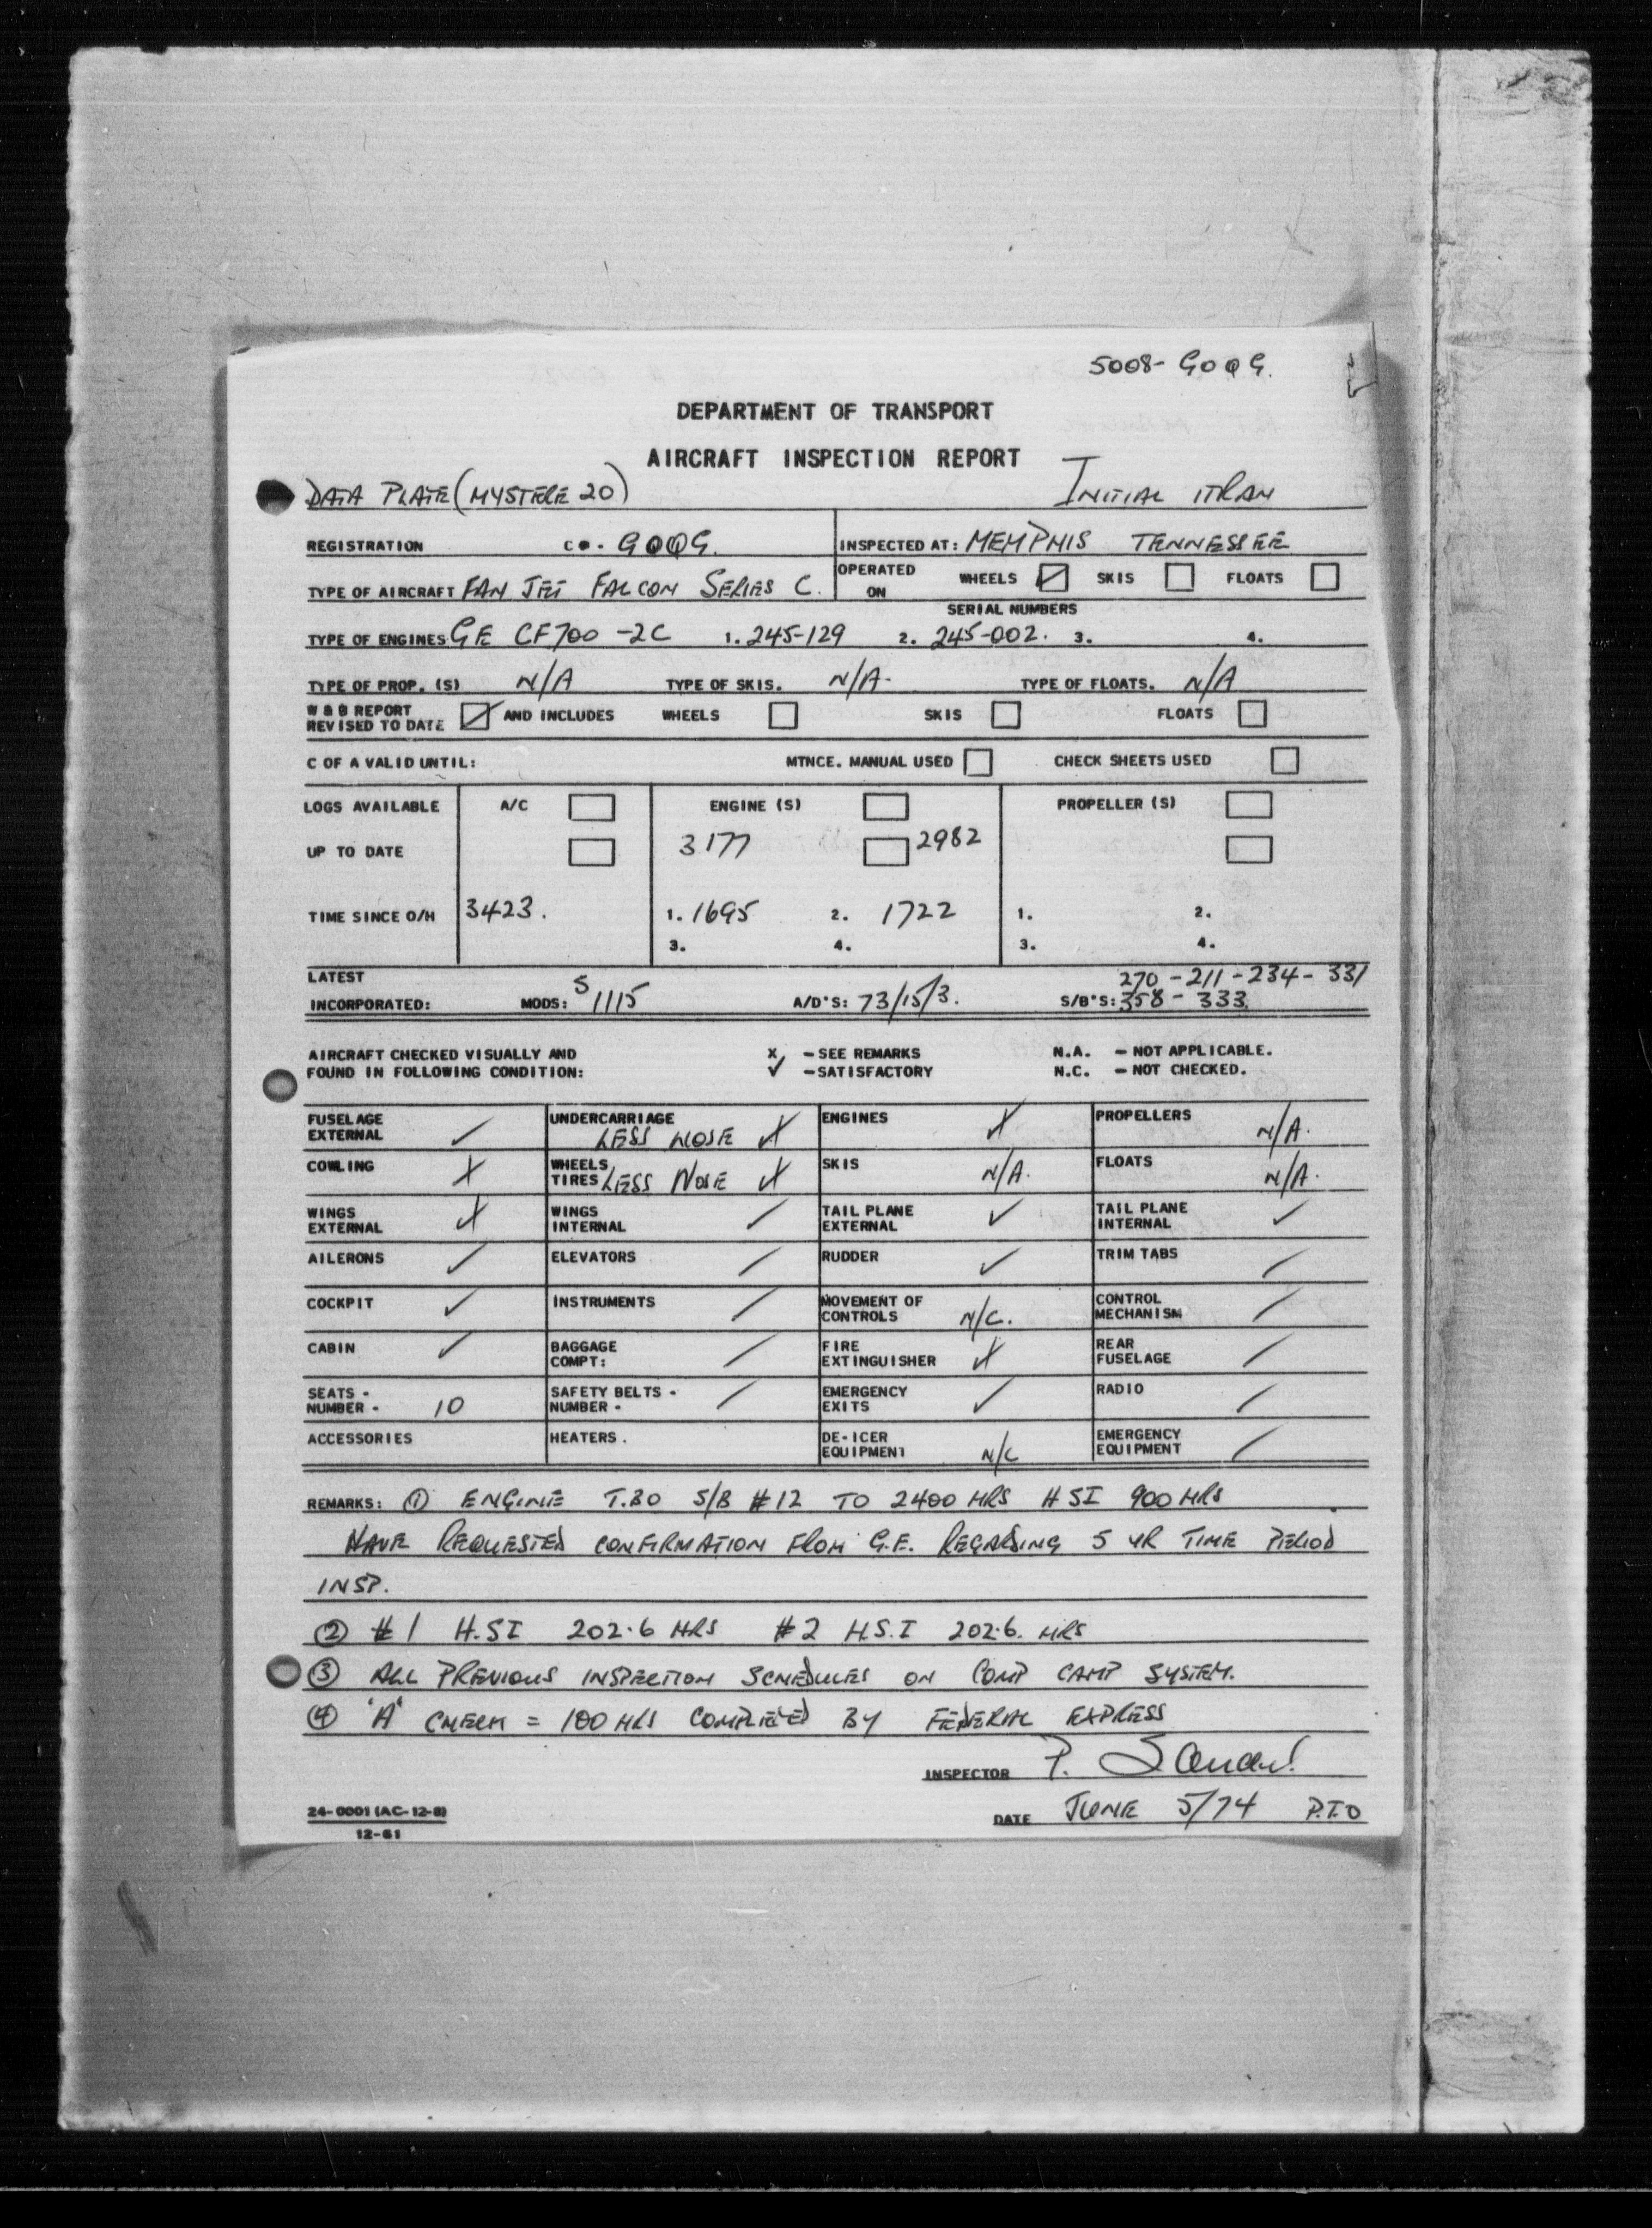 5008-GOQG.
DEPARTMENT OF TRANSPORT
AIRCRAFT INSPECTION REPORT
DATA PLATE (MYSTERE 20) INITIAL
REGISTRATION C GOQG. INSPECTED AT: MEMPHIS TENNESSEE
TYPE OF AIRCRAFT FAN JET FALCON SERIES C. OPERATED ON WHEELS ☑ SKIS ☐ FLOATS ☐
SERIAL NUMBERS
TYPE OF ENGINES GE CF700-2C 1. 245-129 2. 245-002. 3. 4.
TYPE OF PROP. (S) N/A TYPE OF SKIS. N/A TYPE OF FLOATS. N/A
W & B REPORT
REVISED TO DATE ☑ AND INCLUDES WHEELS ☐ SKIS ☐ FLOATS ☐
C OF A VALID UNTIL: MTNCE. MANUAL USED ☐ CHECK SHEETS USED ☐
LOGS AVAILABLE A/C ☐ ENGINE (S) ☐ PROPELLER (S) ☐
UP TO DATE ☐ 3177 ☐ 2982 ☐
TIME SINCE O/H 3423. 1. 1695 2. 1722 1. 2.
3. 4. 3. 4.
LATEST 270-211-234-331
INCORPORATED: MODS: S 1115 A/D'S: 73/15/3. S/B'S: 358-333.
AIRCRAFT CHECKED VISUALLY AND X - SEE REMARKS N.A. - NOT APPLICABLE.
FOUND IN FOLLOWING CONDITION: ✓ - SATISFACTORY N.C. - NOT CHECKED.
FUSELAGE EXTERNAL ✓ UNDERCARRIAGE LESS NOSE X ENGINES X PROPELLERS N/A.
COWLING X WHEELS TIRES LESS NOSE X SKIS N/A. FLOATS N/A.
WINGS EXTERNAL X WINGS INTERNAL ✓ TAIL PLANE EXTERNAL ✓ TAIL PLANE INTERNAL ✓
AILERONS ✓ ELEVATORS ✓ RUDDER ✓ TRIM TABS ✓
COCKPIT ✓ INSTRUMENTS ✓ MOVEMENT OF CONTROLS N/C. CONTROL MECHANISM ✓
CABIN ✓ BAGGAGE COMPT: ✓ FIRE EXTINGUISHER X REAR FUSELAGE ✓
SEATS - NUMBER - 10 SAFETY BELTS - NUMBER - ✓ EMERGENCY EXITS ✓ RADIO ✓
ACCESSORIES HEATERS. DE-ICER EQUIPMENT N/C EMERGENCY EQUIPMENT ✓
REMARKS: ① ENGINE T.BO S/B #12 TO 2400 HRS HSI 900 HRS
HAVE REQUESTED CONFIRMATION FROM G.E. REGARDING 5 YR TIME PERIOD
INSP.
② #1 H.SI 202.6 HRS #2 H.S.I 202.6. HRS
③ ALL PREVIOUS INSPECTION SCHEDULES ON COMP CAMP SYSTEM.
④ 'A' CHECK = 100 HRS COMPLETED BY FEDERAL EXPRESS
INSPECTOR P.
24-0001 (AC-12-8) DATE JUNE 5/74 P.T.O
12-61